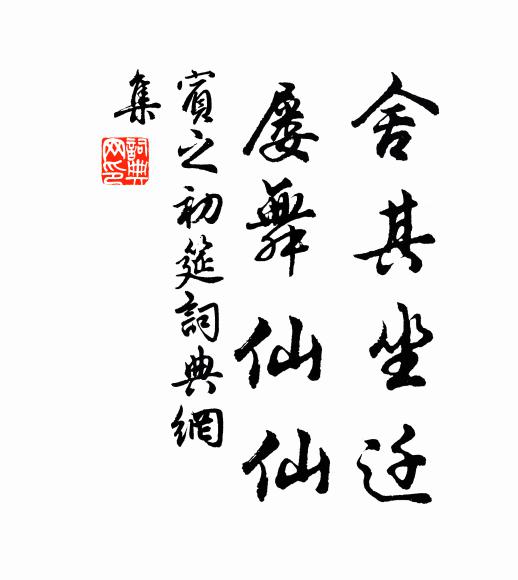 舍其坐迁
屡舞仙仙
賓之初筵詞典網
集
詞典
网印